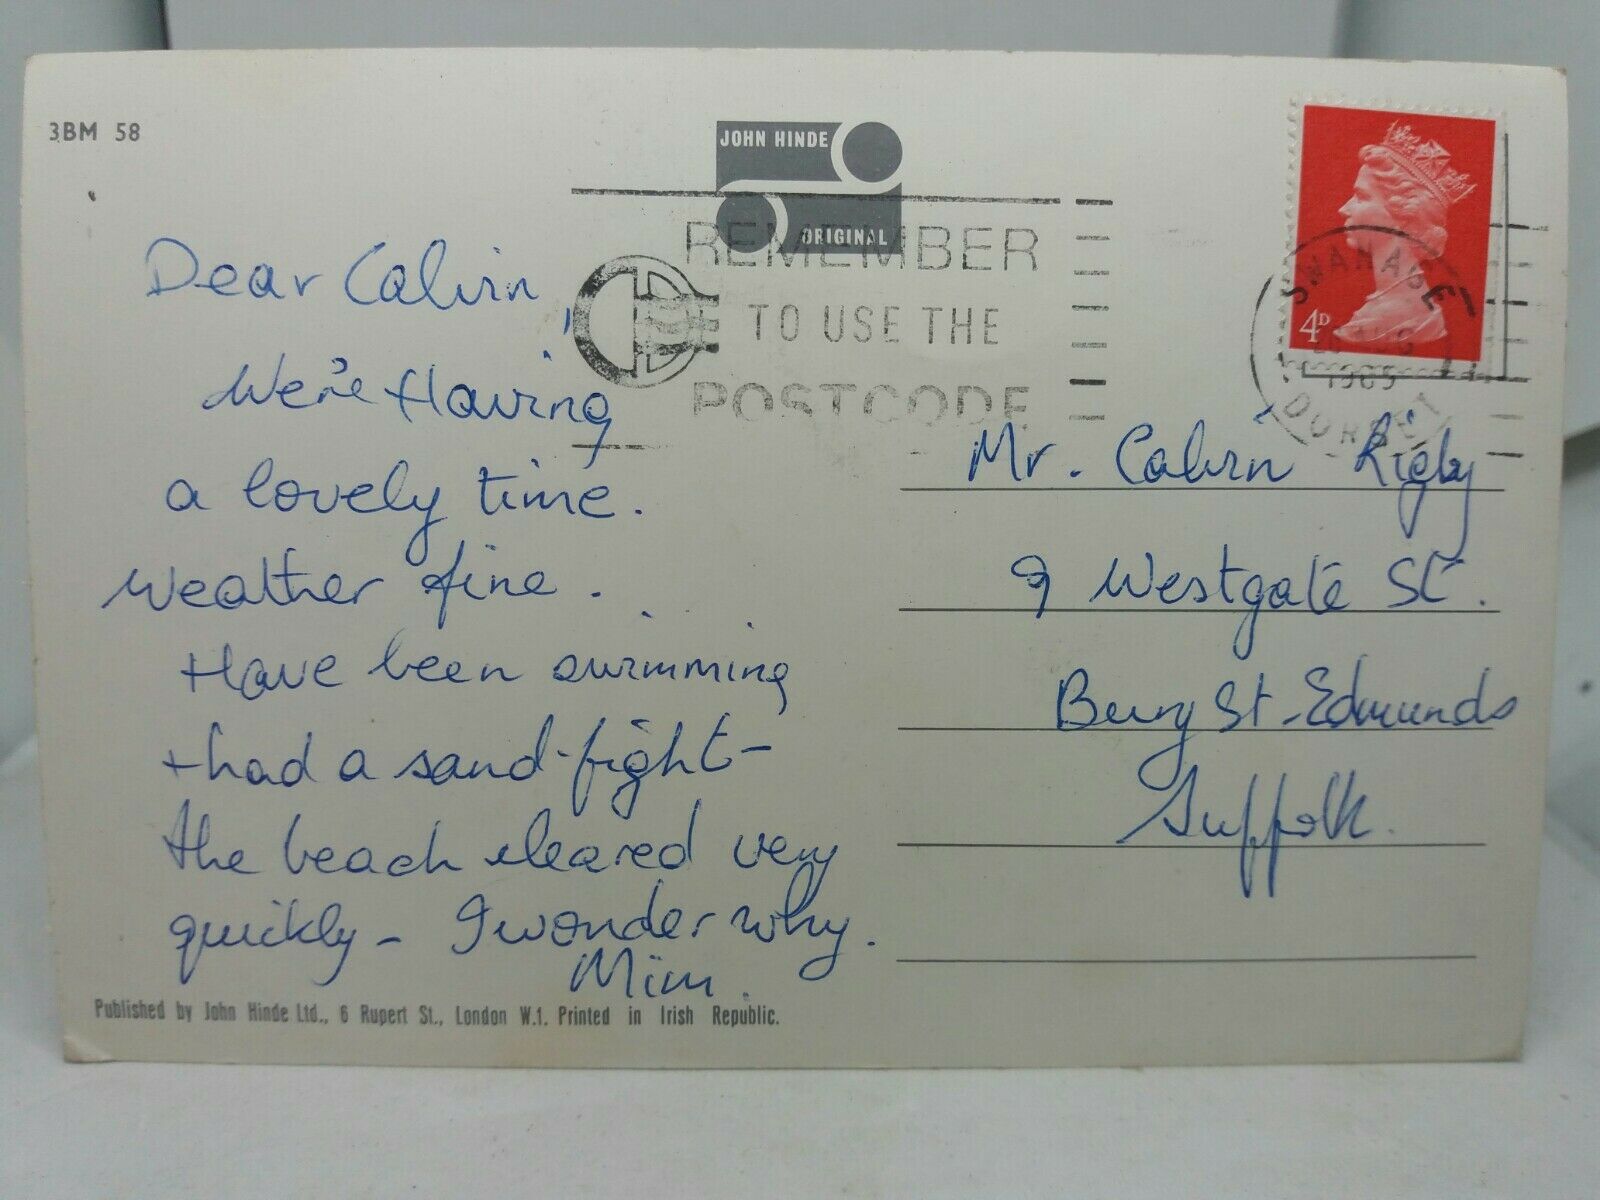 3BM 58
JOHN HINDE
ORIGINAL
REMEMBER
TO USE THE
POSTCODE
4D
SWANAGE
DORSET
Dear Calvin,
We're Having
a lovely time.
Weather fine.
Have been swimming
+ had a sand-fight-
the beach cleared very
quickly - I wonder why.
Mim.
Mr. Calvin Rigby
9 Westgate St.
Bury St. Edmunds
Suffolk.
Published by John Hinde Ltd., 6 Rupert St., London W.1. Printed in Irish Republic.